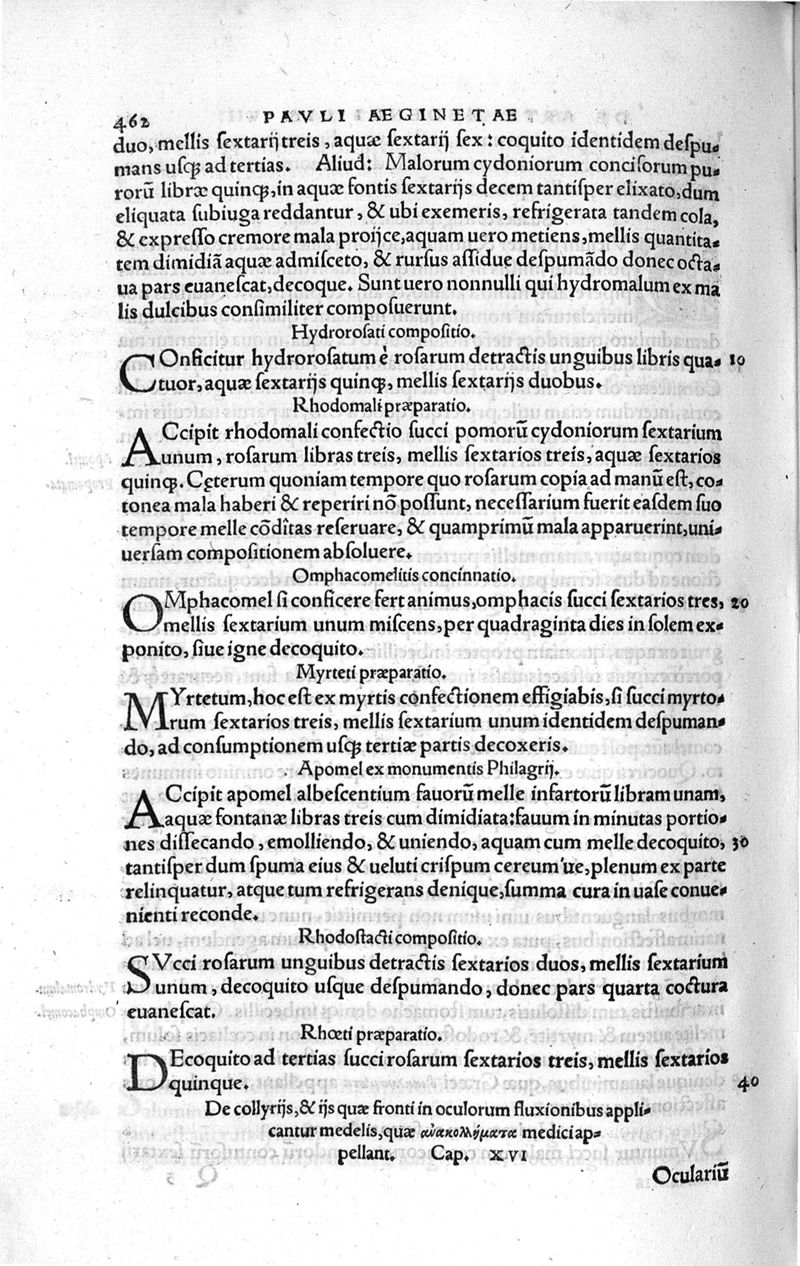 462 PAVLI AEGINETAE
duo, mellis sextarij treis, aquæ sextarij sex: coquito identidem despu-
mans usq; ad tertias. Aliud: Malorum cydoniorum concisorum pu-
rorũ libræ quinq;, in aquæ fontis sextarijs decem tantisper elixato, dum
eliquata subiuga reddantur, & ubi exemeris, refrigerata tandem cola,
& expresso cremore mala proijce, aquam uero metiens, mellis quantita-
tem dimidiã aquæ admisceto, & rursus assidue despumãdo donec octa-
ua pars euanescat, decoque. Sunt uero nonnulli qui hydromalum ex ma
lis dulcibus consimiliter composuerunt.
Hydrorosati compositio.
COnficitur hydrorosatum è rosarum detractis unguibus libris qua- 10
tuor, aquæ sextarijs quinq;, mellis sextarijs duobus.
Rhodomali præparatio.
ACcipit rhodomali confectio succi pomorũ cydoniorum sextarium
unum, rosarum libras treis, mellis sextarios treis, aquæ sextarios
quinq;. Cęterum quoniam tempore quo rosarum copia ad manũ est, co-
tonea mala haberi & reperiri nõ possunt, necessarium fuerit easdem suo
tempore melle cõditas reseruare, & quamprimũ mala apparuerint, uni-
uersam compositionem absoluere.
Omphacomelitis concinnatio.
OMphacomel si conficere fert animus, omphacis succi sextarios tres, 20
mellis sextarium unum miscens, per quadraginta dies in solem ex-
ponito, siue igne decoquito.
Myrteti præparatio.
MYrtetum, hoc est ex myrtis confectionem effigiabis, si succi myrto-
rum sextarios treis, mellis sextarium unum identidem despuman-
do, ad consumptionem usq; tertiæ partis decoxeris.
Apomel ex monumentis Philagrij.
ACcipit apomel albescentium fauorũ melle infartorũ libram unam,
aquæ fontanæ libras treis cum dimidiata: fauum in minutas portio-
nes dissecando, emolliendo, & uniendo, aquam cum melle decoquito, 30
tantisper dum spuma eius & ueluti crispum cereum'ue, plenum ex parte
relinquatur, atque tum refrigerans denique, summa cura in uase conue-
nienti reconde.
Rhodostacti compositio.
SVcci rosarum unguibus detractis sextarios duos, mellis sextarium
unum, decoquito usque despumando, donec pars quarta coctura
euanescat.
Rhoeti præparatio.
DEcoquito ad tertias succi rosarum sextarios treis, mellis sextarios
quinque. 40
De collyrijs, & ijs quæ fronti in oculorum fluxionibus appli-
cantur medelis, quæ ἀνακολλήματα medici ap-
pellant. Cap. XVI
Oculariũ